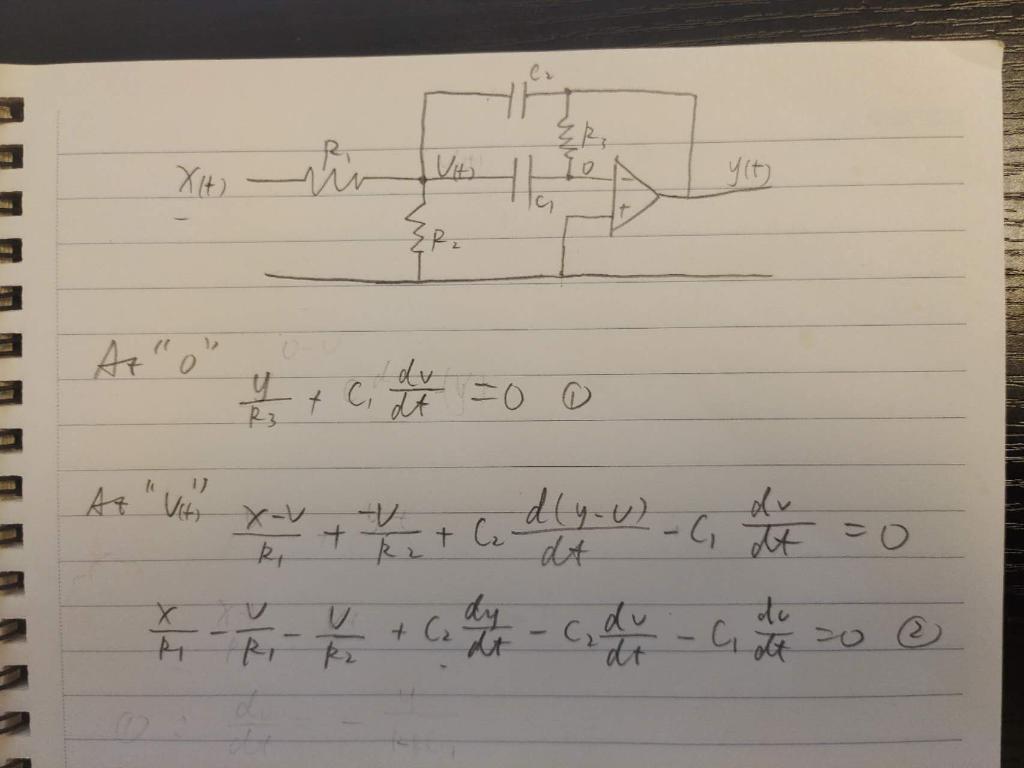 C₂
R₃
R₁
X(t)
V(t)
0
C₁
-
+
y(t)
R₂
At "0"
y/R₃ + C₁ dv/dt = 0 ①
At "V(t)" (x-v)/R₁ + -v/R₂ + C₂ d(y-v)/dt - C₁ dv/dt = 0
x/R₁ - v/R₁ - v/R₂ + C₂ dy/dt - C₂ dv/dt - C₁ dv/dt = 0 ②